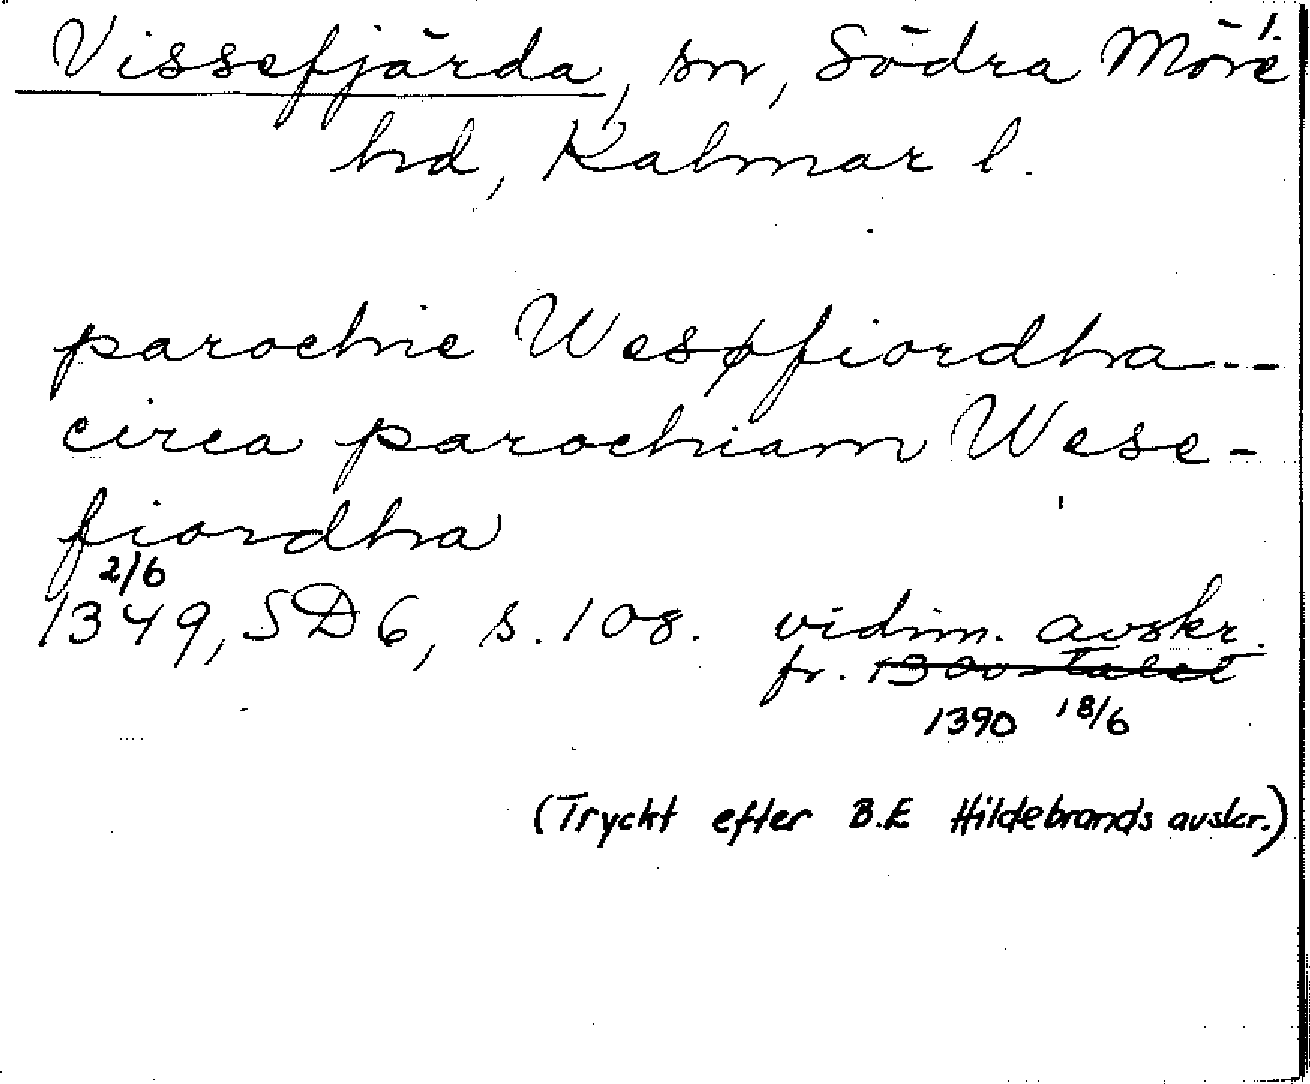 1.
Vissefjärda, sn, Södra Möre
hd, Kalmar l.
parochie Wesfiordha --
circa parochiam Wese-
fiordha
2/6
1349, SD 6, s. 108. vidim. avskr.
fr. 1300-talet
1390 18/6
(Tryckt efter B.E Hildebrands avskr.)